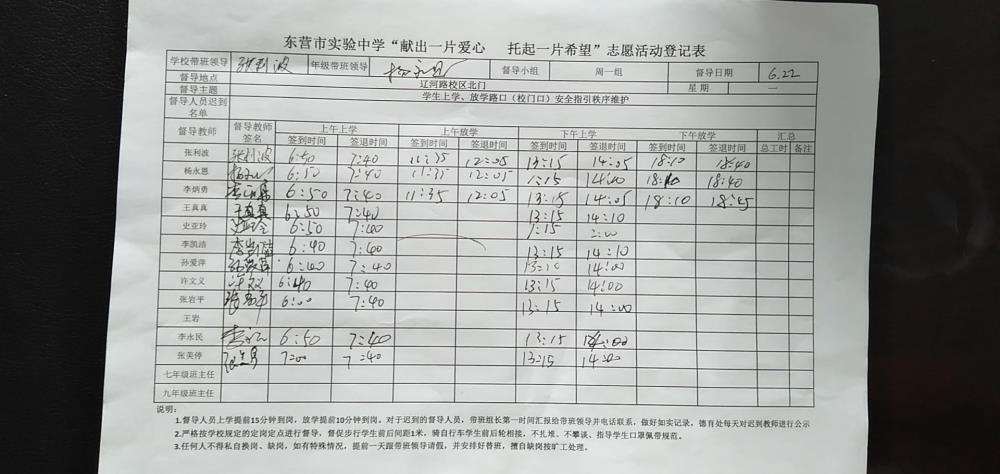 东营市实验中学“献出一片爱心 托起一片希望”志愿活动登记表
学校带班领导 张利波 年级带班领导 杨永恩 督导小组 周一组 督导日期 6.22
督导地点 辽河路校区北门 星期 一
督导主题 学生上学、放学路口（校门口）安全指引秩序维护
督导人员迟到名单
督导教师 督导教师签名 上午上学 上午放学 下午上学 下午放学 汇总
签到时间 签退时间 签到时间 签退时间 签到时间 签退时间 签到时间 签退时间 总工时 备注
张利波 张利波 6:50 7:40 11:35 12:05 13:15 14:05 18:10 18:40
杨永恩 6:50 7:40 11:35 12:05 1:15 14:00 18:10 18:40
李炳勇 6:50 7:40 11:35 12:05 13:15 14:05 18:10 18:45
王真真 王真真 6:50 7:40 13:15 14:10
史亚玲 史亚玲 6:50 7:40 1:15 2:00
李凯洁 李凯洁 6:40 7:40 13:15 14:10
孙爱萍 孙爱萍 6:40 7:40 13:10 14:00
许文义 许文义 6:40 7:40 13:15 14:00
张岩平 张岩平 6:00 7:40 13:15 14:00
王岩
李永民 6:50 7:40 13:15 14:00
张美停 7:00 7:40 13:15 14:00
七年级班主任
九年级班主任
说明：
1.督导人员上学提前15分钟到岗，放学提前10分钟到岗，对于迟到的督导人员，带班组长第一时间汇报给带班领导并电话联系，做好如实记录，德育处每天对迟到教师进行公示
2.严格按学校规定的定岗定点进行督导，督促步行学生前后间距1米，骑自行车学生前后轮相接，不扎堆、不攀谈、指导学生口罩佩带规范。
3.任何人不得私自换岗、缺岗，如有特殊情况，提前一天跟带班领导请假，并安排好替班，擅自缺岗按旷工处理。